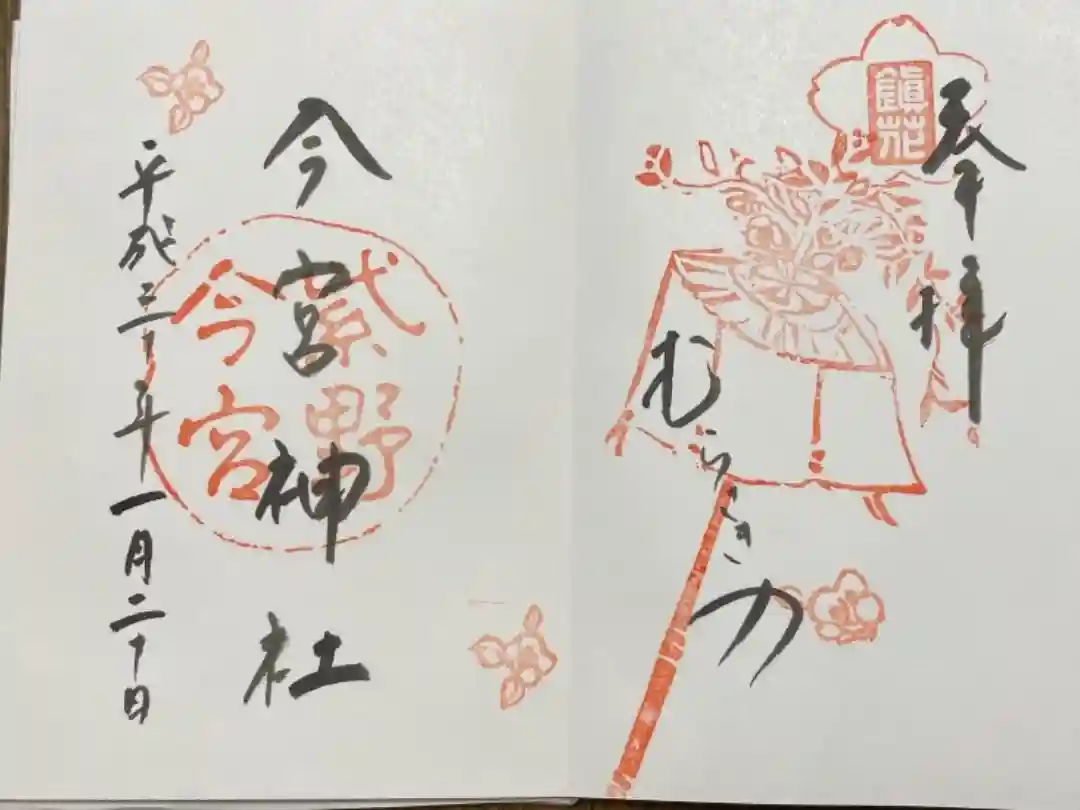 奉拝
むらさき乃
鎮花
今宮神社
紫野
今宮
平成三十年一月二十日